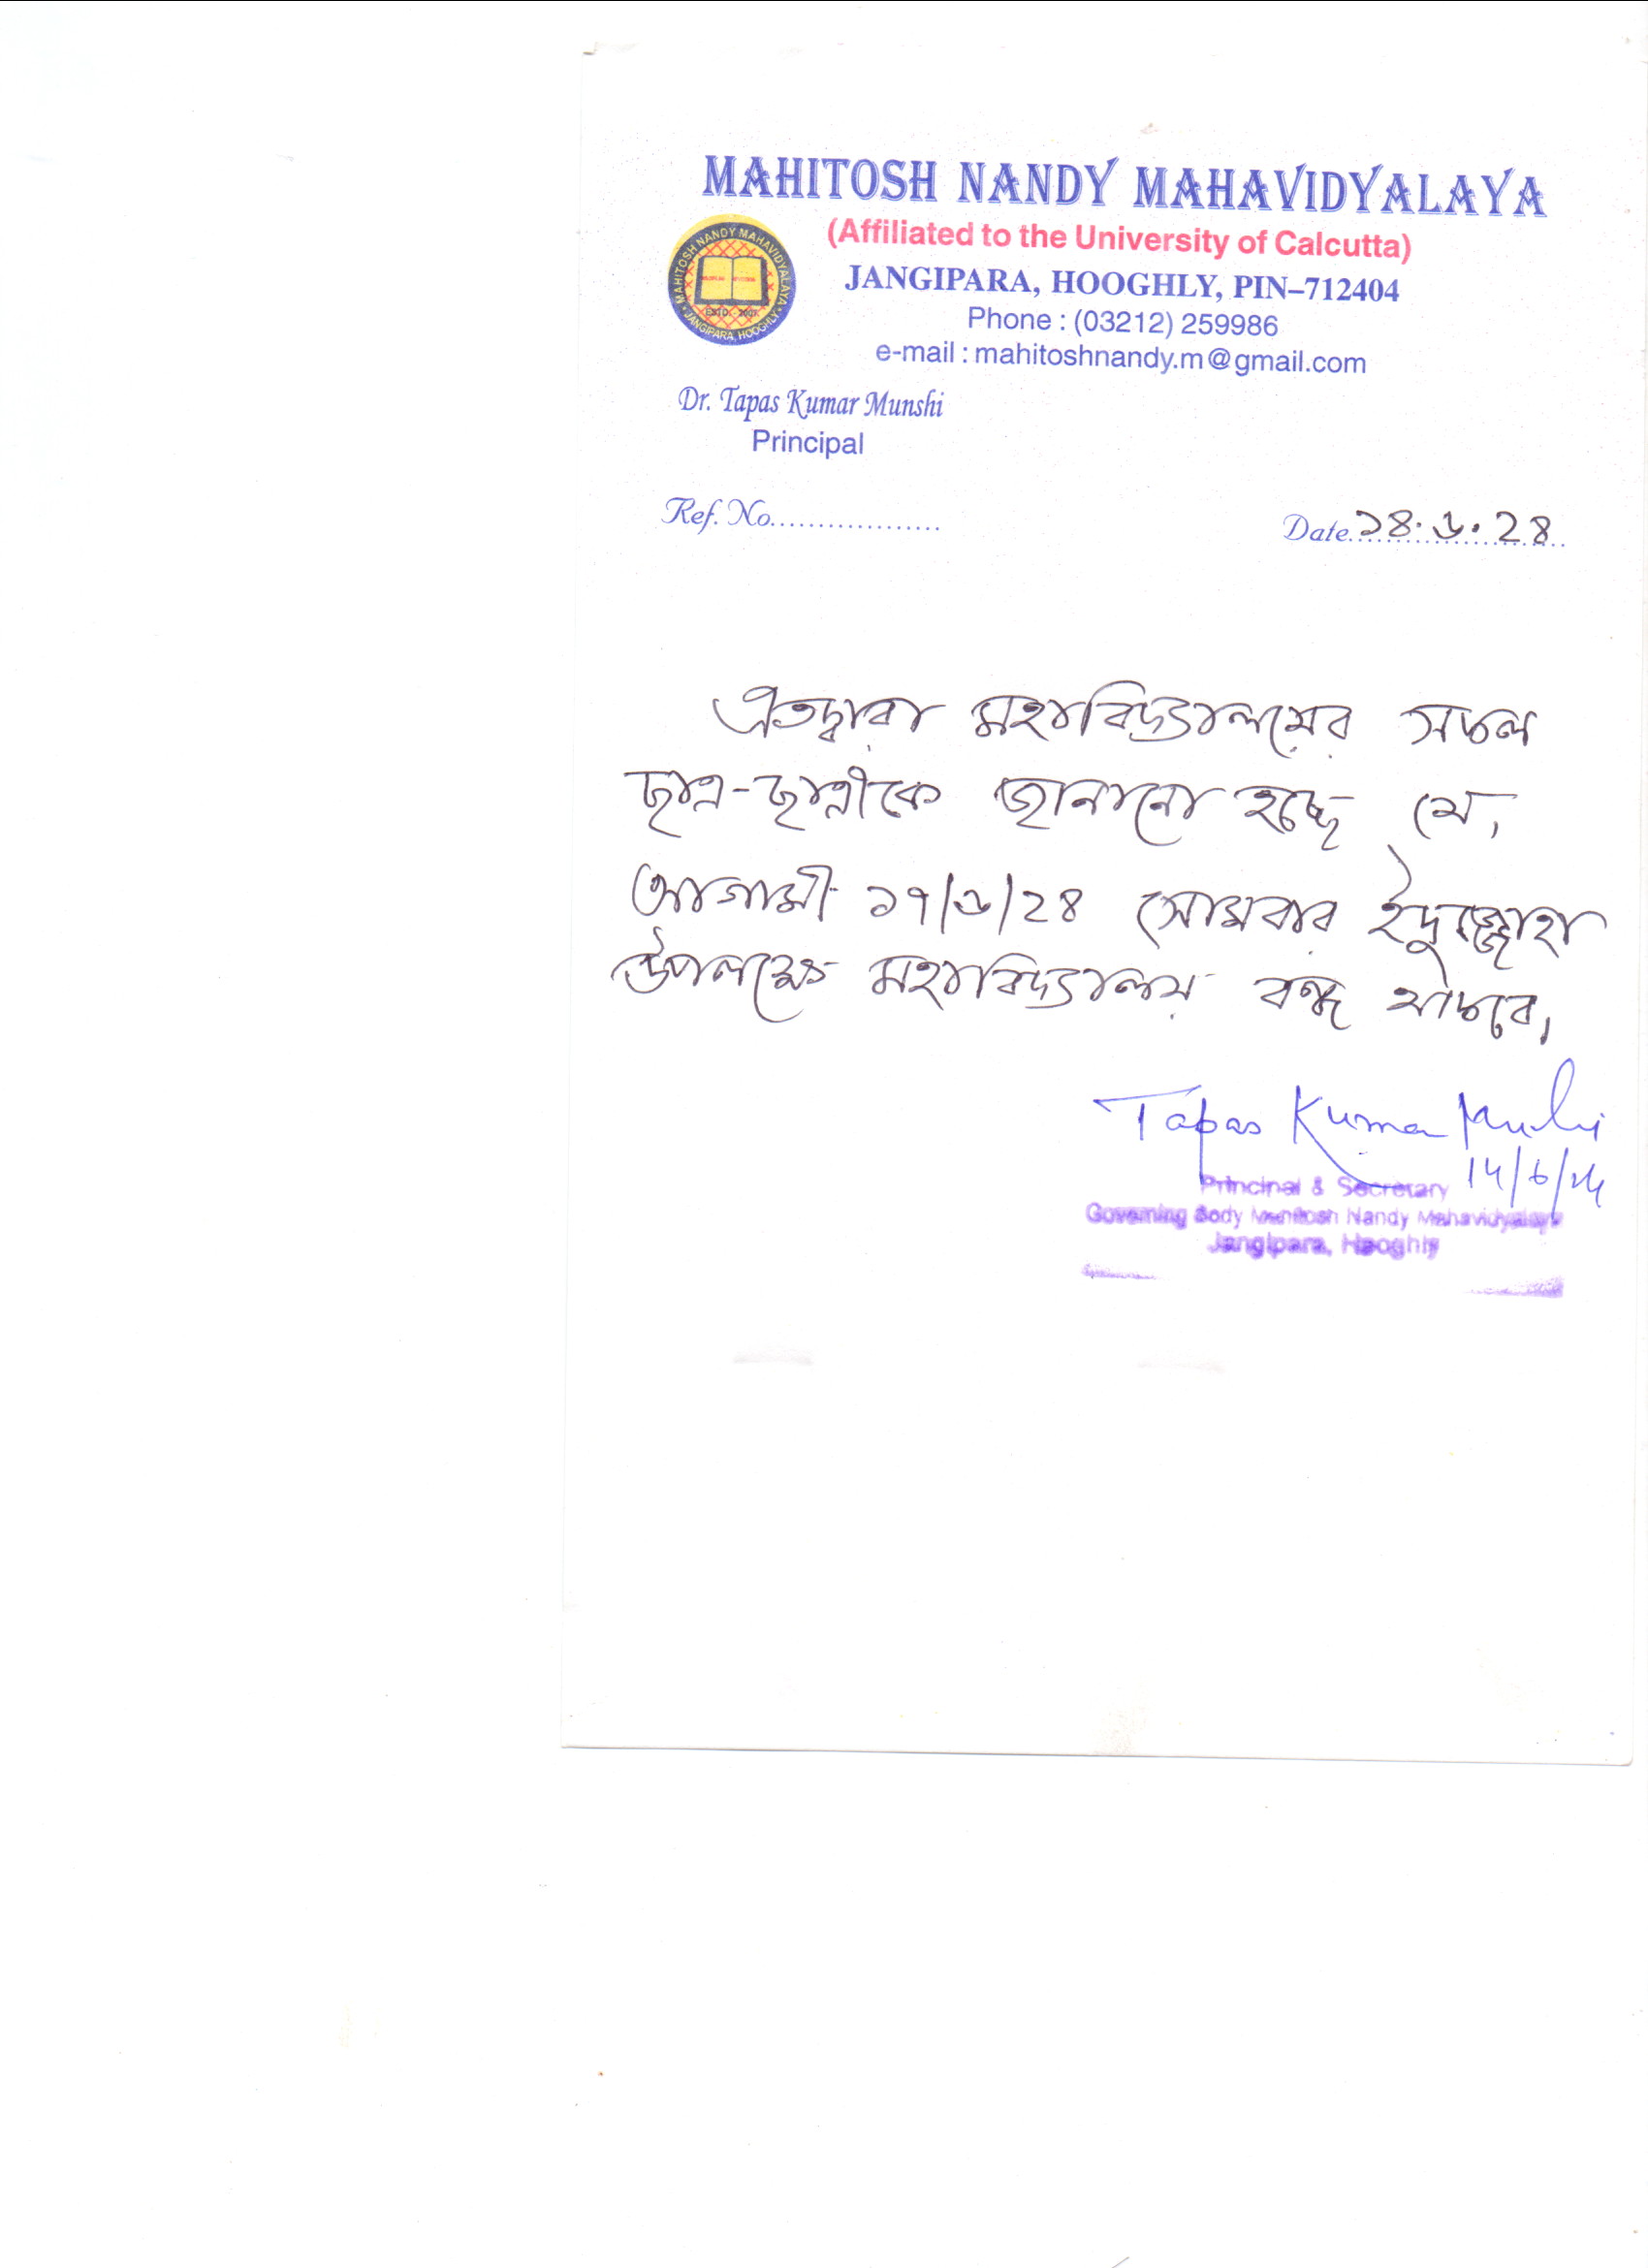 MAHITOSH NANDY MAHAVIDYALAYA
(Affiliated to the University of Calcutta)
JANGIPARA, HOOGHLY, PIN–712404
Phone : (03212) 259986
e-mail : mahitoshnandy.m@gmail.com
MAHITOSH NANDY MAHAVIDYALAYA
ESTD. - 2007
JANGIPARA, HOOGHLY
Dr. Tapas Kumar Munshi
Principal
Ref. No.................. Date..১৪.৬.২৪
এতদ্বারা মহাবিদ্যালয়ের সকল
ছাত্র-ছাত্রীকে জানানো হচ্ছে যে,
আগামী ১৭/৬/২৪ সোমবার ইদুজ্জোহা
উপলক্ষে মহাবিদ্যালয় বন্ধ থাকবে।
Tapas Kumar Munshi
14/6/24
Principal & Secretary
Governing Body Mahitosh Nandy Mahavidyalaya
Jangipara, Hooghly